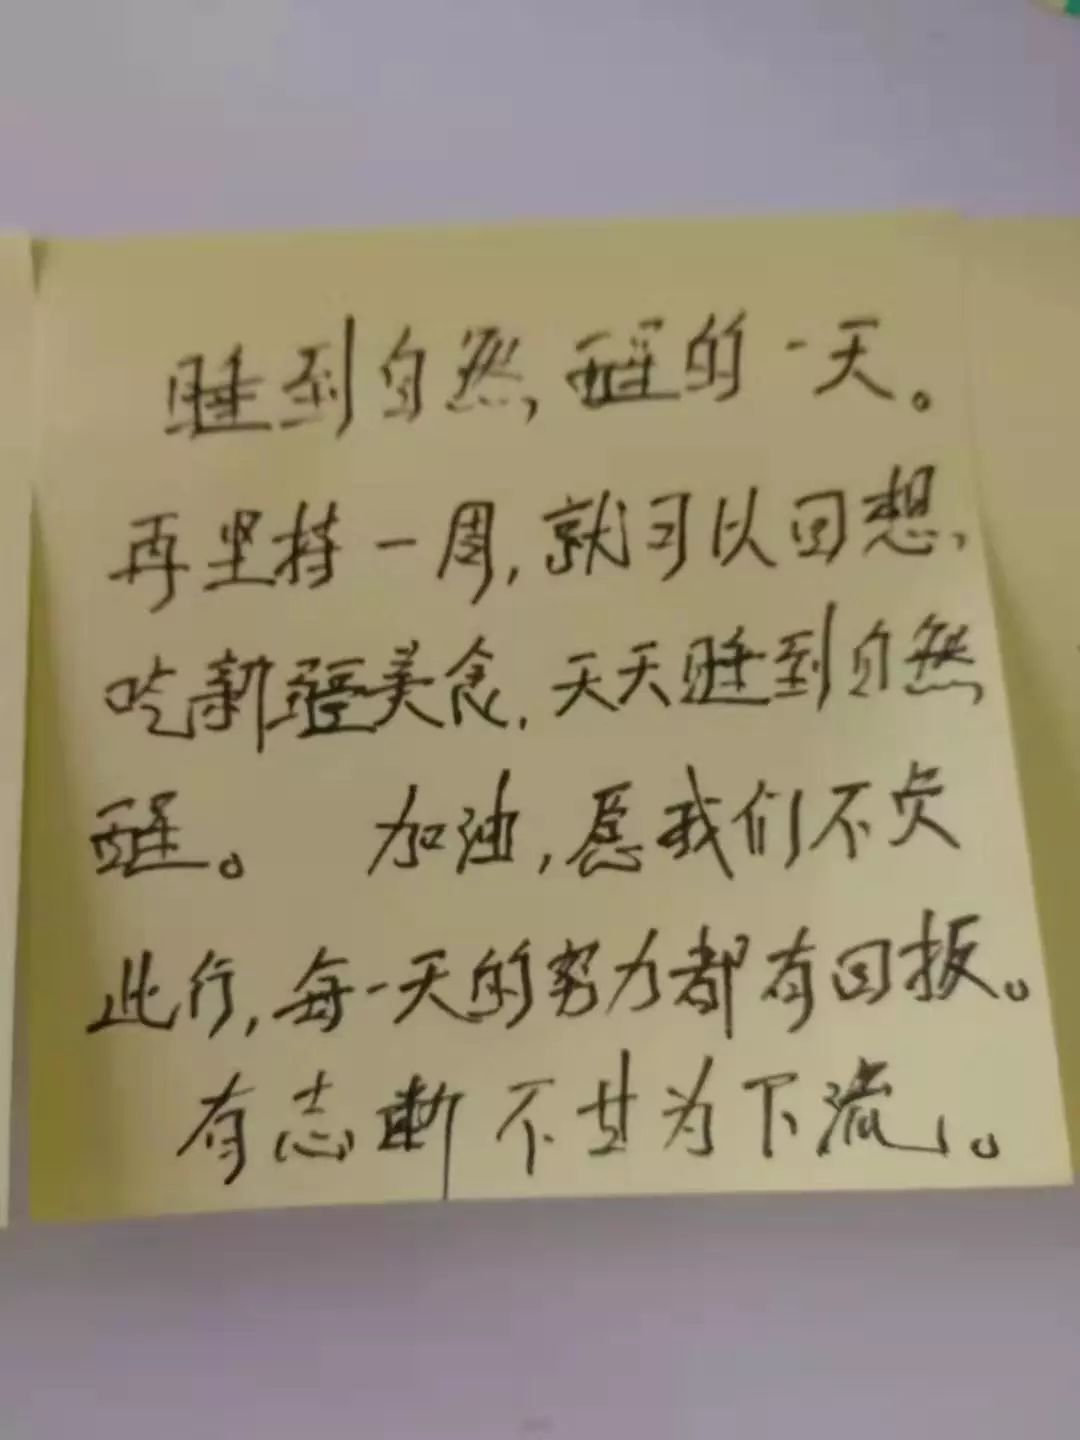 睡到自然,醒的一天。
再坚持一周,就可以回想,
吃新疆美食,天天睡到自然
醒。 加油,愿我们不负
此行,每一天的努力都有回报。
有志断不甘为下流。